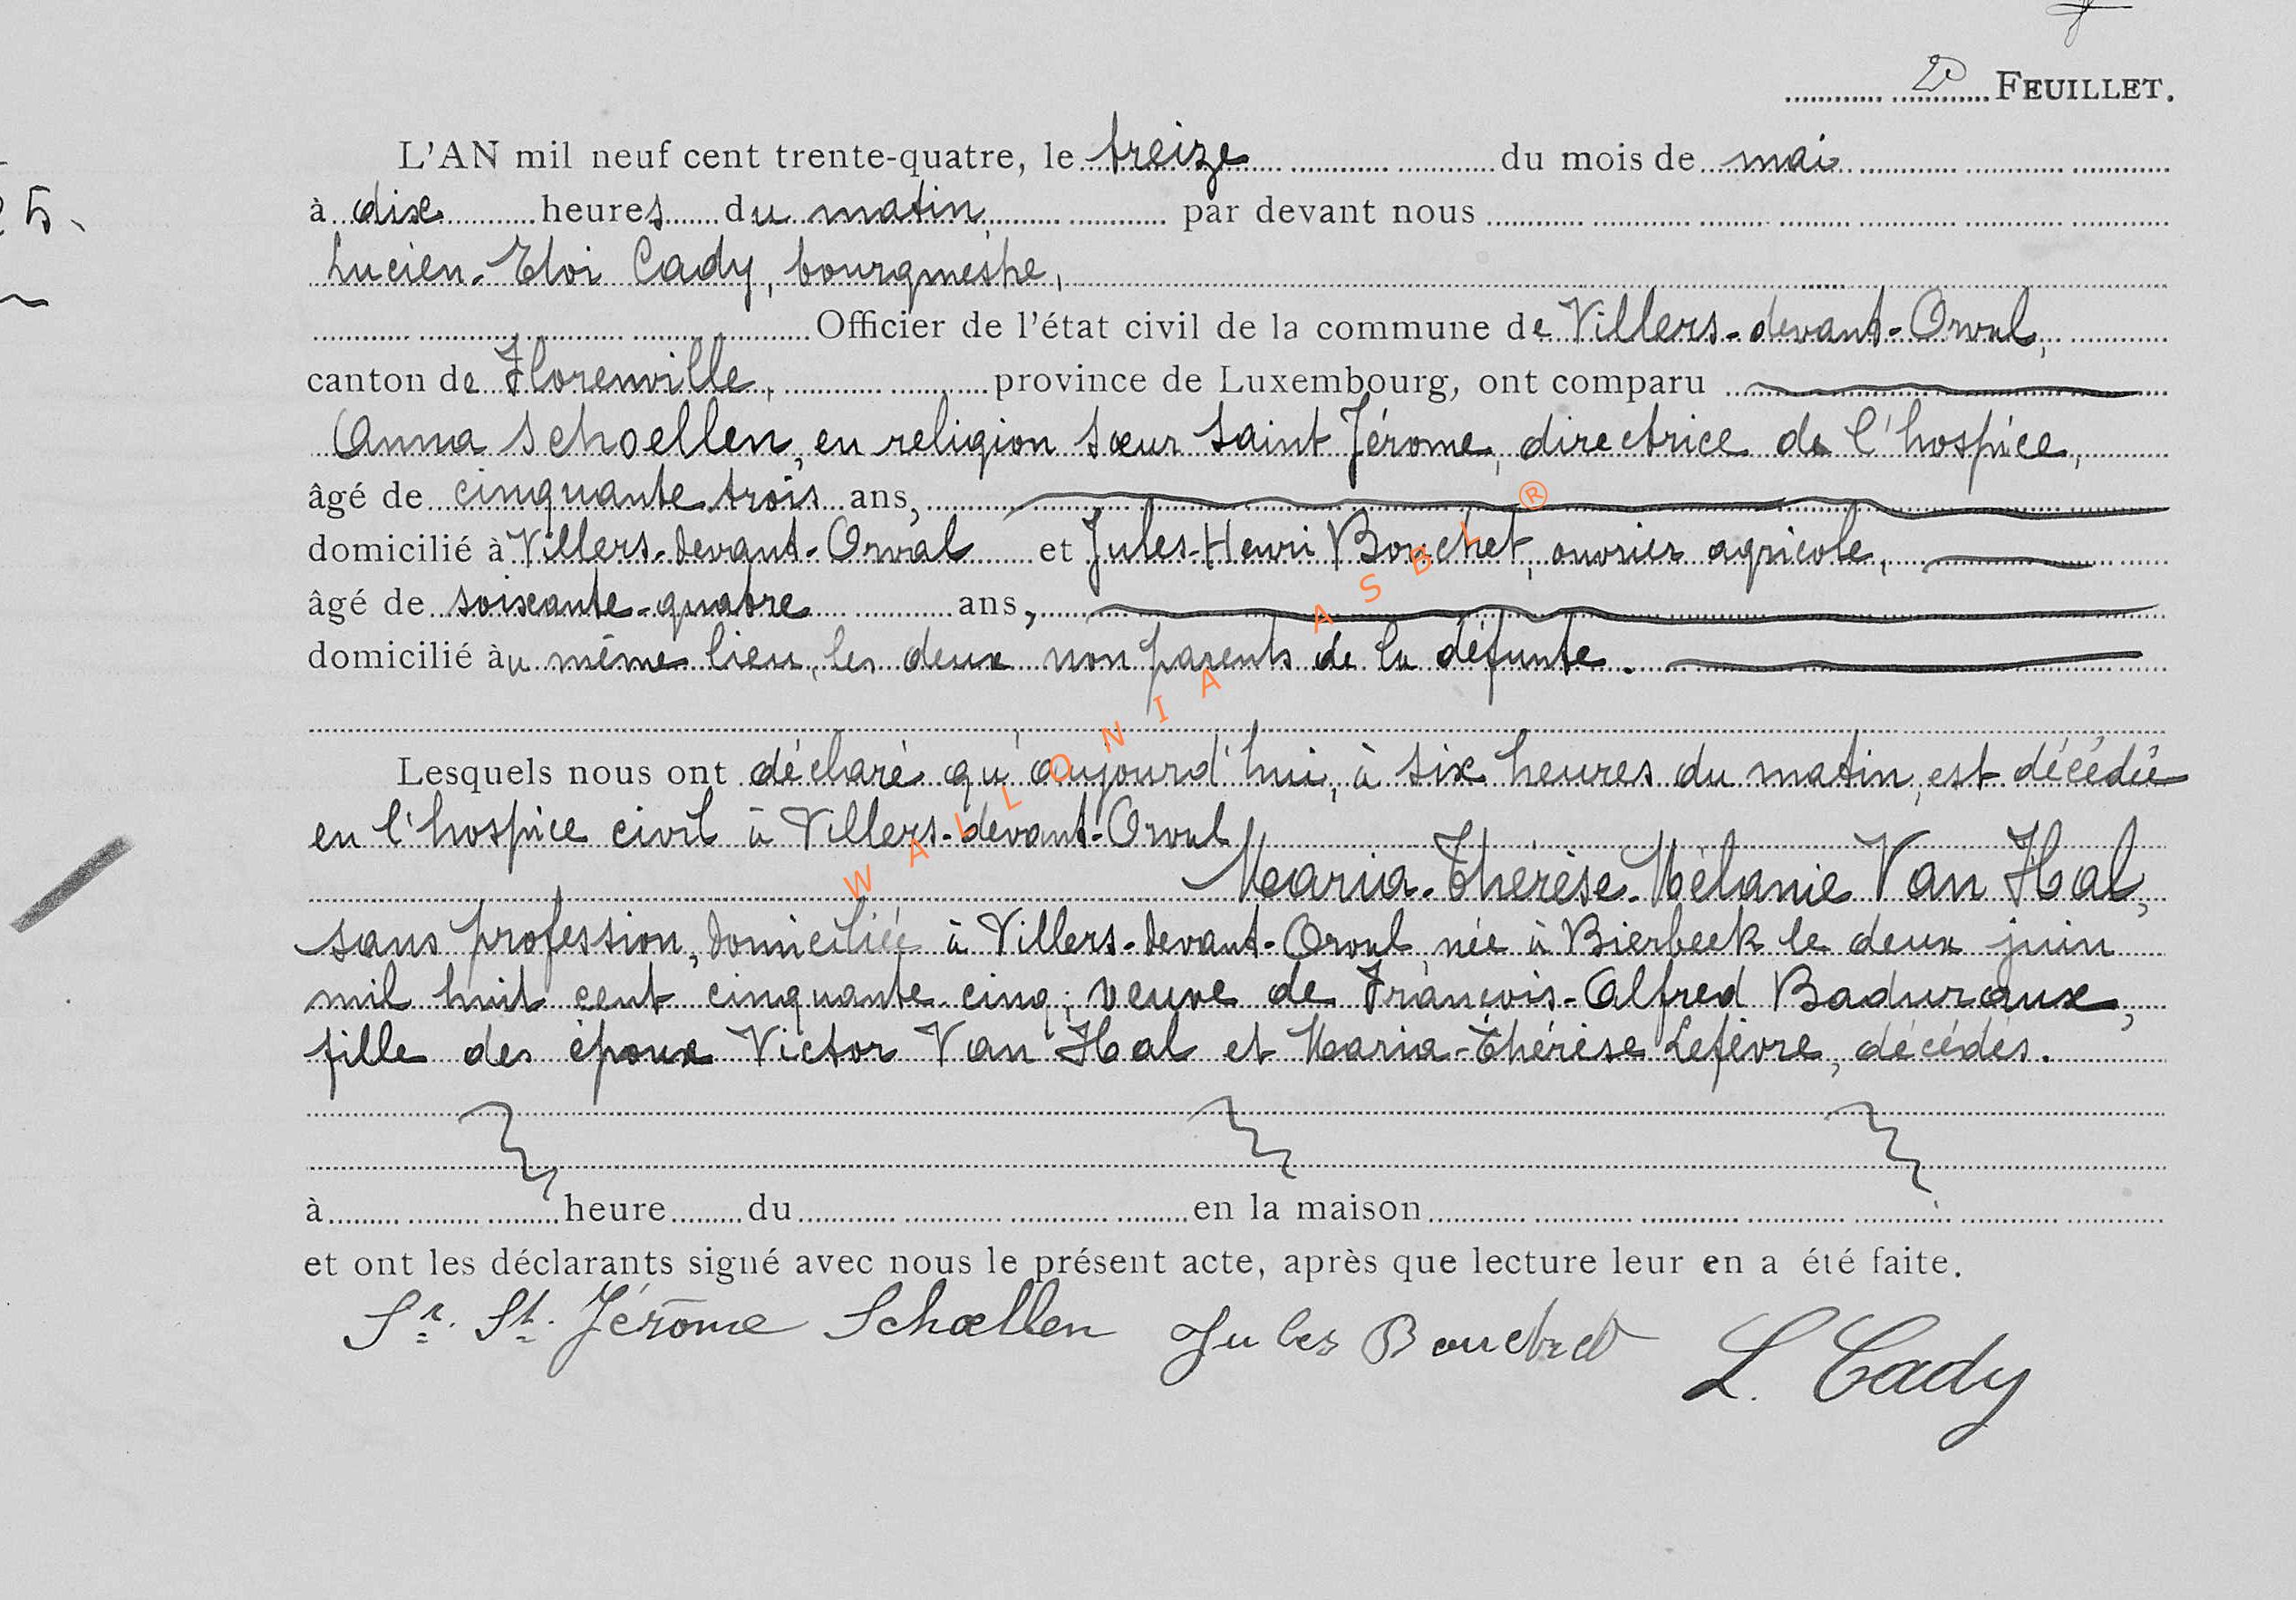 FEUILLET.
L'AN mil neuf cent trente-quatre, le treize du mois de mai
25.
à dix heures du matin par devant nous
Lucien-Eloi Cady, bourgmestre,
Officier de l'état civil de la commune de Villers-devant-Orval,
canton de Florenville, province de Luxembourg, ont comparu
Anna Schoellen, en religion sœur Saint Jérome, directrice de l'hospice,
âgé de cinquante trois ans,
domicilié à Villers-devant-Orval et Jules-Henri Bouchet, ouvrier agricole,
âgé de soixante-quatre ans,
domicilié àu même lieu, les deux non parents de la défunte.
Lesquels nous ont déclaré qu'aujourd'hui, à six heures du matin, est décédée
en l'hospice civil à Villers-devant-Orval
Maria-Thérèse-Mélanie Van Hal,
sans profession, domiciliée à Villers-devant-Orval, née à Bierbeek le deux juin
mil huit cent cinquante-cinq, veuve de François-Alfred Baduraux,
fille des époux Victor Van Hal et Maria-Thérèse Lefèvre, décédés.
à heure du en la maison
et ont les déclarants signé avec nous le présent acte, après que lecture leur en a été faite.
Sr. St. Jérome Schœllen Jules Bouchet L. Cady
WALLONIA ASBL ®